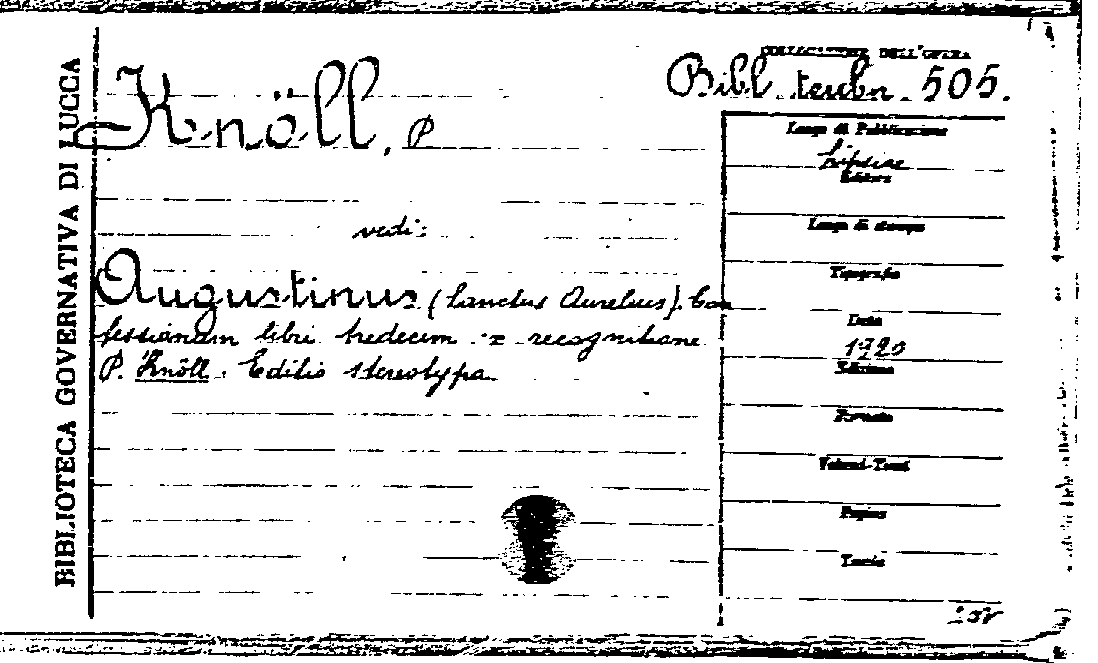 BIBLIOTECA GOVERNATIVA DI LUCCA
COLLOCAZIONE DELL'OPERA
Bibl. teubn. 505.
Knöll, P
vedi:
Augustinus (Sanctus Aurelius). Con
fessionum libri tredecim recognitione
P. Knöll. Editio stereotypa
Luogo di Pubblicazione
Lipsiae
Editore
Luogo di stampa
Tipografia
Data
Edizione
Formato
Volumi-Tomi
Pagine
Tavole